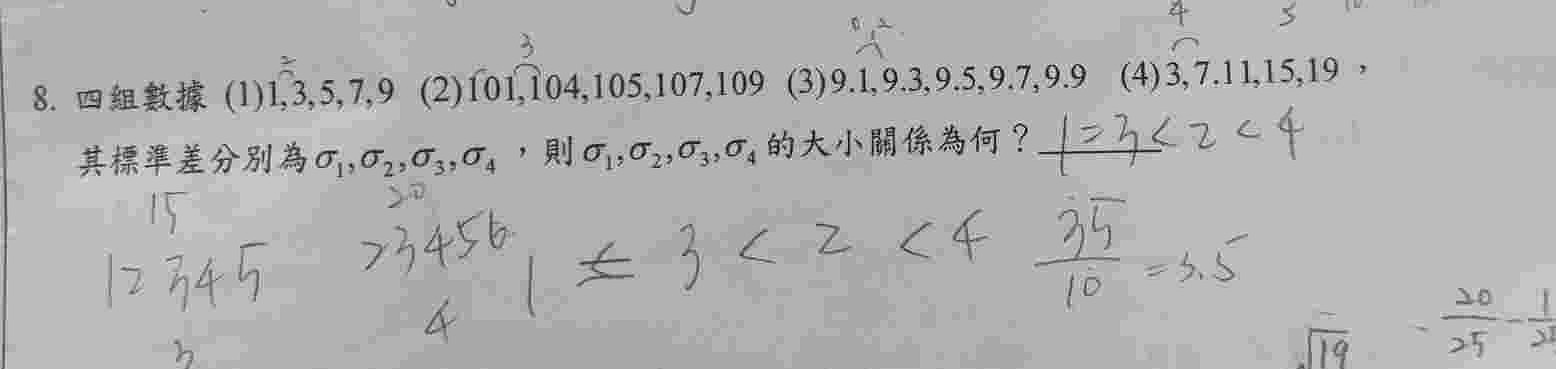 2 3 0.2 4 5
8. 四組數據 (1)1,3,5,7,9 (2)101,104,105,107,109 (3)9.1,9.3,9.5,9.7,9.9 (4)3,7.11,15,19，
其標準差分別為σ₁,σ₂,σ₃,σ₄，則σ₁,σ₂,σ₃,σ₄的大小關係為何？ 1=3<2<4
15 20
12345 23456 1 ≤ 3 < 2 < 4 35/10 =3.5
3 4 √19 - 20/25 -